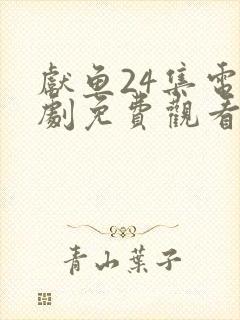 獻鱼24集電
劇免費觀看
青山葉子